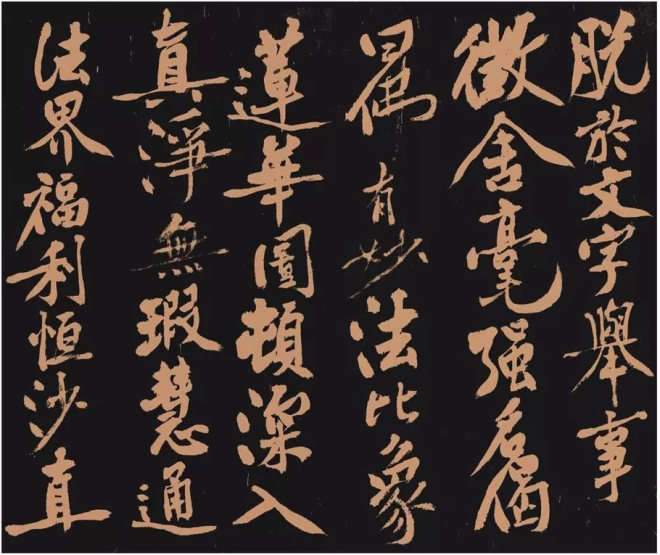 脱於文字舉事
徵含毫强名偈
有妙法比象
蓮華圓頓深入
真淨無瑕慧通
法界福利恒沙直